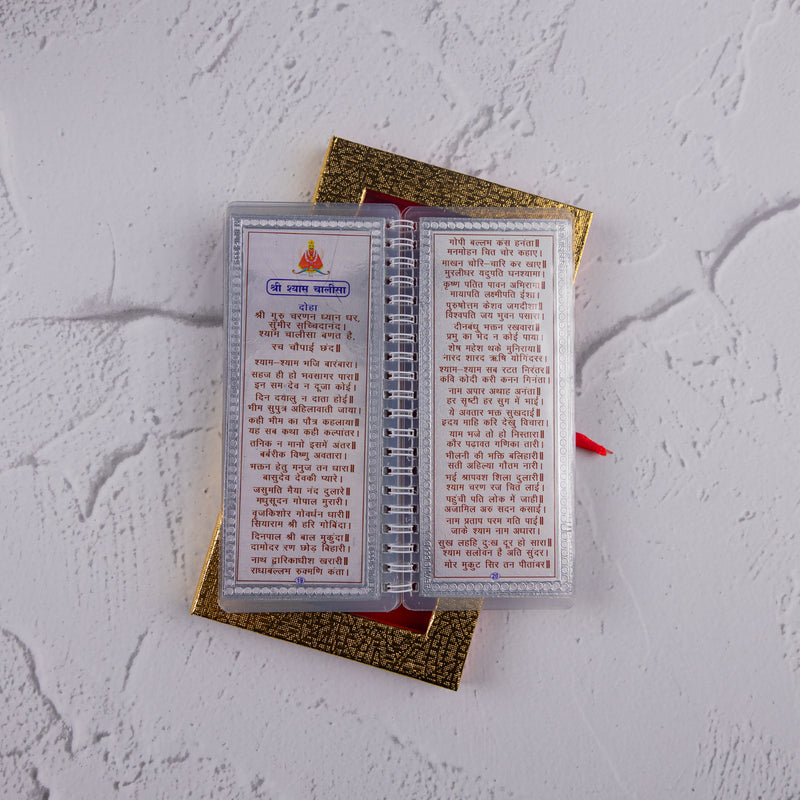 श्री श्याम चालीसा
दोहा
श्री गुरु चरणन ध्यान धर,
सुमीर सच्चिदानंद।
श्याम चालीसा बणत है,
रच चौपाई छंद॥
श्याम-श्याम भजि बारंबारा।
सहज ही हो भवसागर पारा॥
इन सम देव न दूजा कोई।
दिन दयालु न दाता होई॥
भीम सुपुत्र अहिलावाती जाया।
कही भीम का पौत्र कहलाया॥
यह सब कथा कही कल्पांतर।
तनिक न मानो इसमें अंतर॥
बर्बरीक विष्णु अवतारा।
भक्तन हेतु मनुज तन धारा॥
बासुदेव देवकी प्यारे।
जसुमति मैया नंद दुलारे॥
मधुसूदन गोपाल मुरारी।
वृजकिशोर गोवर्धन धारी॥
सियाराम श्री हरि गोबिंदा।
दिनपाल श्री बाल मुकुंदा॥
दामोदर रण छोड़ बिहारी।
नाथ द्वारिकाधीश खरारी॥
राधाबल्लभ रुक्मणि कंता।
19
गोपी बल्लभ कंस हनंता॥
मनमोहन चित चोर कहाए।
माखन चोरि-चारि कर खाए॥
मुरलीधर यदुपति घनश्यामा।
कृष्ण पतित पावन अभिरामा॥
मायापति लक्ष्मीपति ईशा।
पुरुषोत्तम केशव जगदीशा॥
विश्वपति जय भुवन पसारा।
दीनबंधु भक्तन रखवारा॥
प्रभु का भेद न कोई पाया।
शेष महेश थके मुनिराया॥
नारद शारद ऋषि योगिंदरर।
श्याम-श्याम सब रटत निरंतर॥
कवि कोदी करी कनन गिनंता।
नाम अपार अथाह अनंता॥
हर सृष्टी हर सुग में भाई।
ये अवतार भक्त सुखदाई॥
ह्रदय माहि करि देखु विचारा।
याम भजे तो हो निस्तारा॥
कौर पढ़ावत गणिका तारी।
भीलनी की भक्ति बलिहारी॥
सती अहिल्या गौतम नारी।
भई श्रापवश शिला दुलारी॥
श्याम चरण रज चित लाई।
पहुंची पति लोक में जाही॥
अजामिल अरु सदन कसाई।
नाम प्रताप परम गति पाई॥
जाके श्याम नाम अधारा।
सुख लहहि दुःख दूर हो सारा॥
श्याम सलोवन है अति सुंदर।
मोर मुकुट सिर तन पीतांबर॥
20